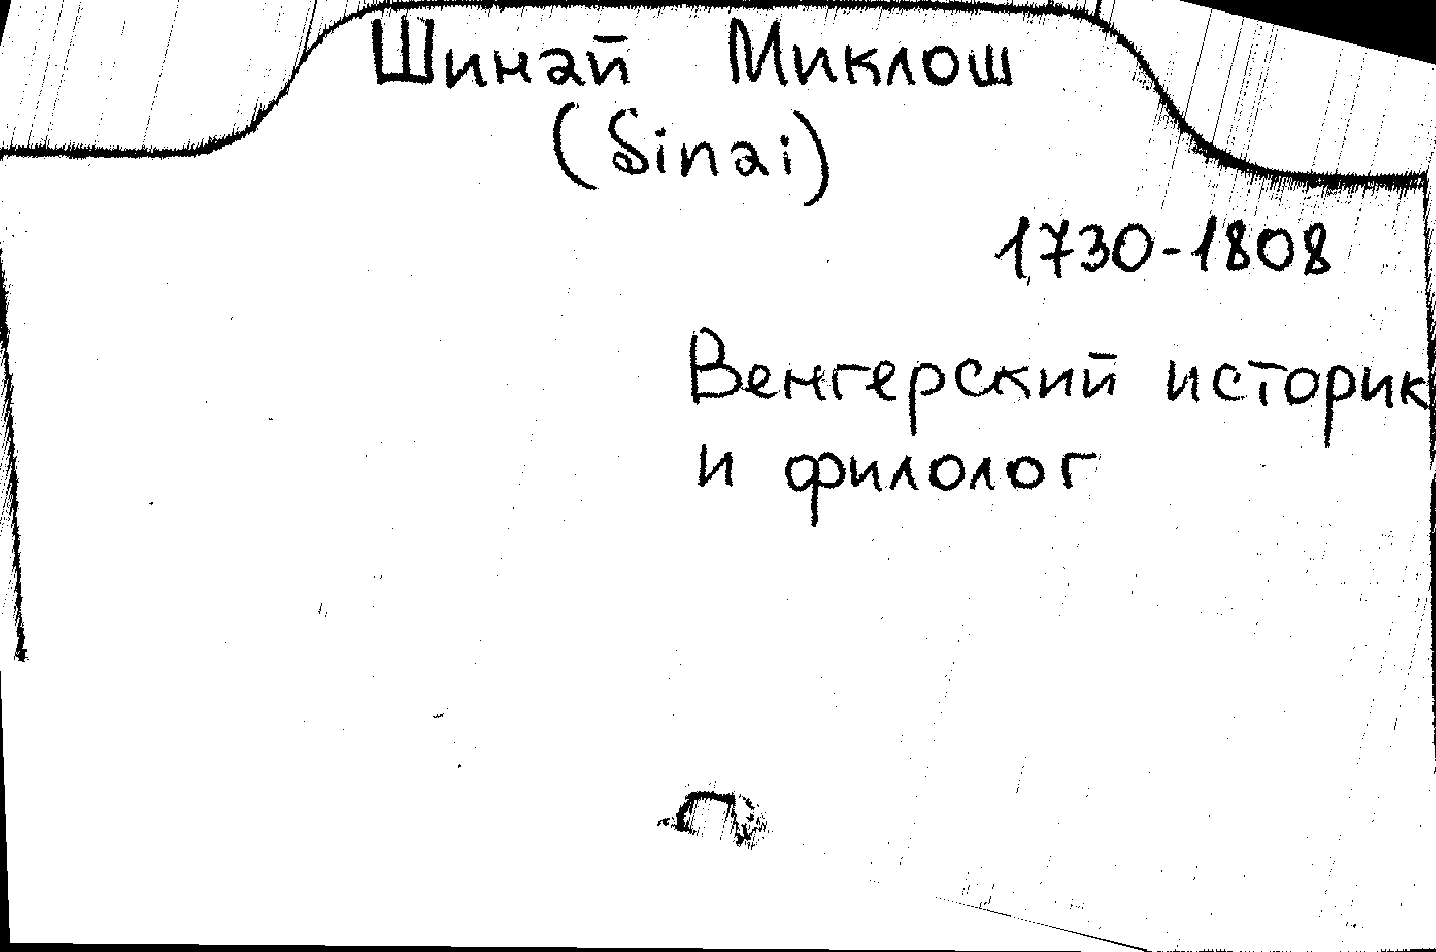 Шинай Миклош
(Sinai)
1730-1808
Венгерский историк
и филолог